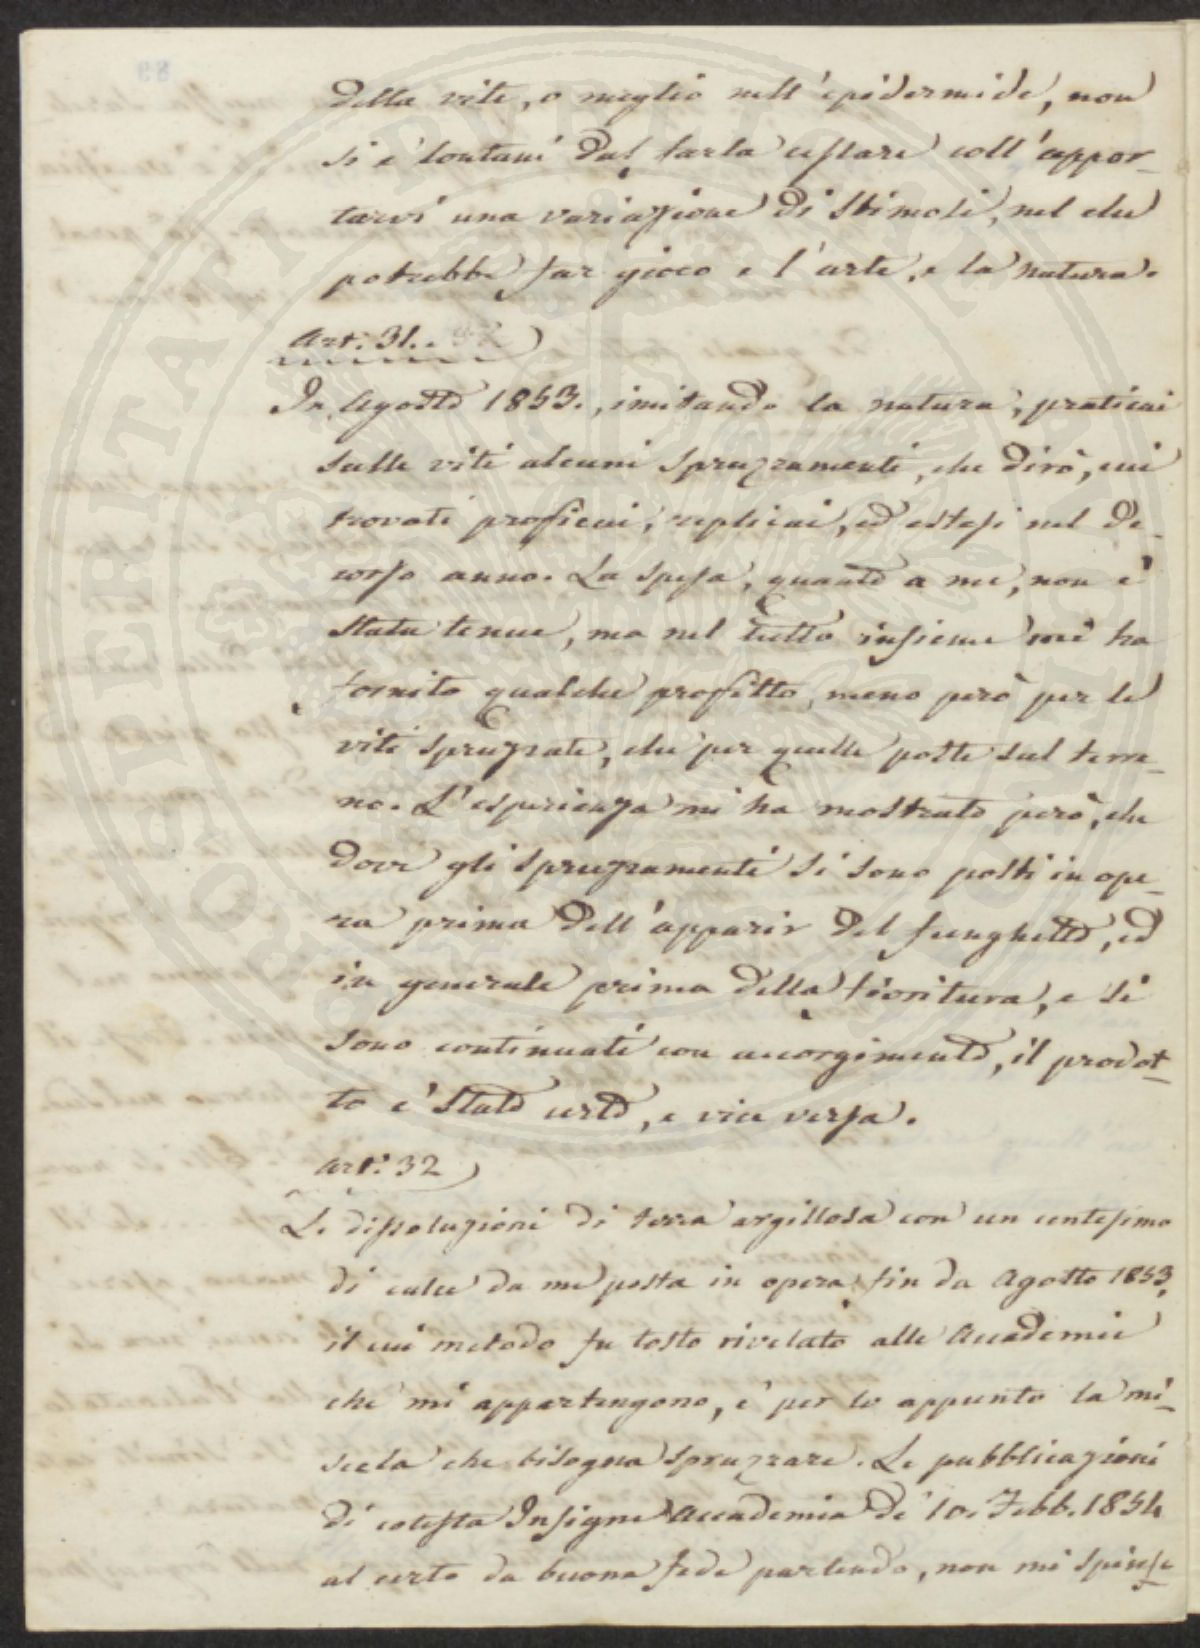 della vite, o meglio nell'epidermide, non
si è lontani dal farla cessare coll'appor-
tarvi una variazione di stimoli, nel che
potrebbe far gioco e l'arte, e la natura.
Art: 31.. 32
In Agosto 1853., imitando la natura, praticai
sulle viti alcuni spruzzamenti, che dirò, cui
trovati proficui, replicai, ed estesi nel de-
corso anno. La spesa, quanto a me, non è
stata tenue, ma nel tutto insieme mi ha
fornito qualche profitto, meno però per le
viti spruzzate, che per quelle poste sul terre-
no. L'esperienza mi ha mostrato però, che
dove gli spruzzamenti si sono posti in ope-
ra prima dell'apparir del funghetto, ed
in generale prima della fioritura, e si
sono continuati con accorgimento, il prodot-
to è stato certo, e vice versa.
Art: 32
Le dissoluzioni di terra argillosa con un centesimo
di calce da me posta in opera fin da Agosto 1853,
il cui metodo fu tosto rivelato alle Accademie
che mi appartengono, è per lo appunto la mi-
scela che bisogna spruzzare. Le pubblicazioni
di cotesta Insigne Accademia de' 10. Febb. 1854
al certo da buona fede partendo, non mi spinse
PROSPERITATI PUBLICAE
89